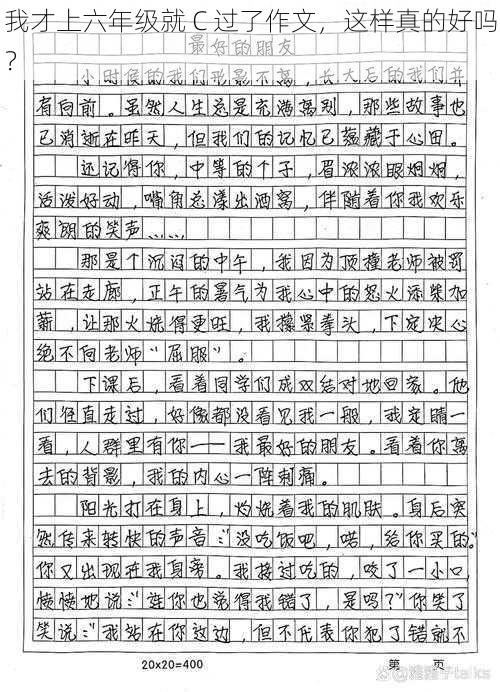 我才上六年级就 C 过了作文，这样真的好吗
?
最好的朋友
小时候的我们形影不离，长大后的我们并
有向前。虽然人生总是充满离别，那些故事也
已消逝在昨天，但我们的记忆已蕴藏于心田。
还记得你，中等的个子，眉浓浓眼炯炯，
活泼好动，嘴角总漾出酒窝，伴随着你我欢乐
爽朗的笑声……
那是个沉闷的中午，我因为顶撞老师被罚
站在走廊，正午的暑气为我心中的怒火添柴加
薪，让那火烧得更旺，我攥紧拳头，下定决心
绝不向老师“屈服”。
下课后，看着同学们成双结对地回家。他
们径直走过，好像都没看见我一般，我定睛一
看，人群里有你——我最好的朋友。看着你离
去的背影，我的内心一阵刺痛。
阳光打在身上，灼烧着我的肌肤。身后突
然传来轻快的声音：“没吃饭吧，喏，给你买的”
你又出现在我身旁。我接过吃的，咬了一小口，
愤愤地说：“连你也觉得我错了，是吗？”你笑了
笑说：“我站在你这边，但不代表你犯了错就不
20×20=400
第 页
talks